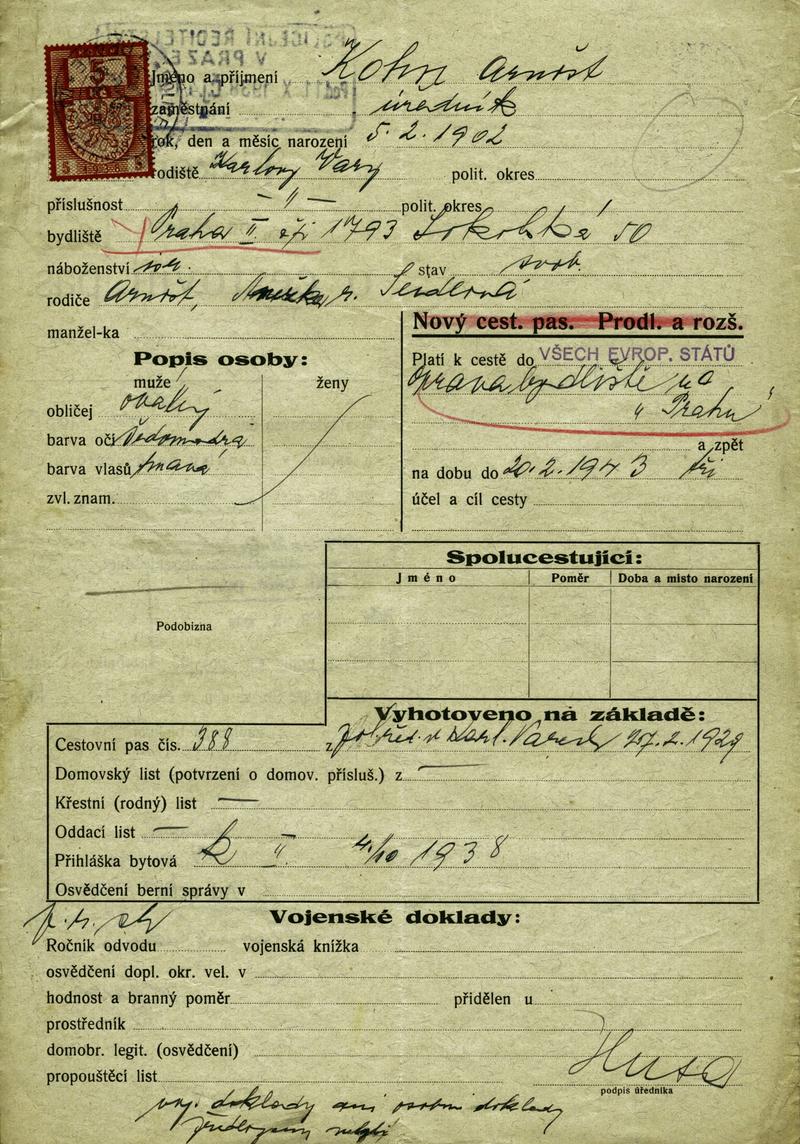 5
5 5
Jméno a příjmení Kohn Arnošt
zaměstnání úředník
rok, den a měsíc narození 5. 2. 1902
rodiště Karlovy Vary polit. okres
příslušnost — " — polit. okres
bydliště Praha II čp 1793 Sokolská 50
náboženství stav svob.
rodiče Arnošt, Anežka r.
manžel-ka
Nový cest. pas. Prodl. a rozš.
Platí k cestě do VŠECH EVROP. STÁTŮ
Oprava bydliště na
" Prahu"
a zpět
na dobu do 20. 2. 1943
účel a cíl cesty
Popis osoby:
muže ženy
obličej oválný
barva očí šedomodrá
barva vlasů tmavá
zvl. znam.
Podobizna
Spolucestující:
Jméno Poměr Doba a místo narození
Vyhotoveno na základě:
Cestovní pas čís. 388 z v Karl. Varech 27. 2. 1929
Domovský list (potvrzení o domov. přísluš.) z —
Křestní (rodný) list —
Oddací list —
Přihláška bytová II 4/10 1938
Osvědčení berní správy v
Vojenské doklady:
Ročník odvodu vojenská knížka
osvědčení dopl. okr. vel. v
hodnost a branný poměr přidělen u
prostředník
domobr. legit. (osvědčení)
propouštěcí list
podpis úředníka
voj. doklady ani osobní doklady
předloženy